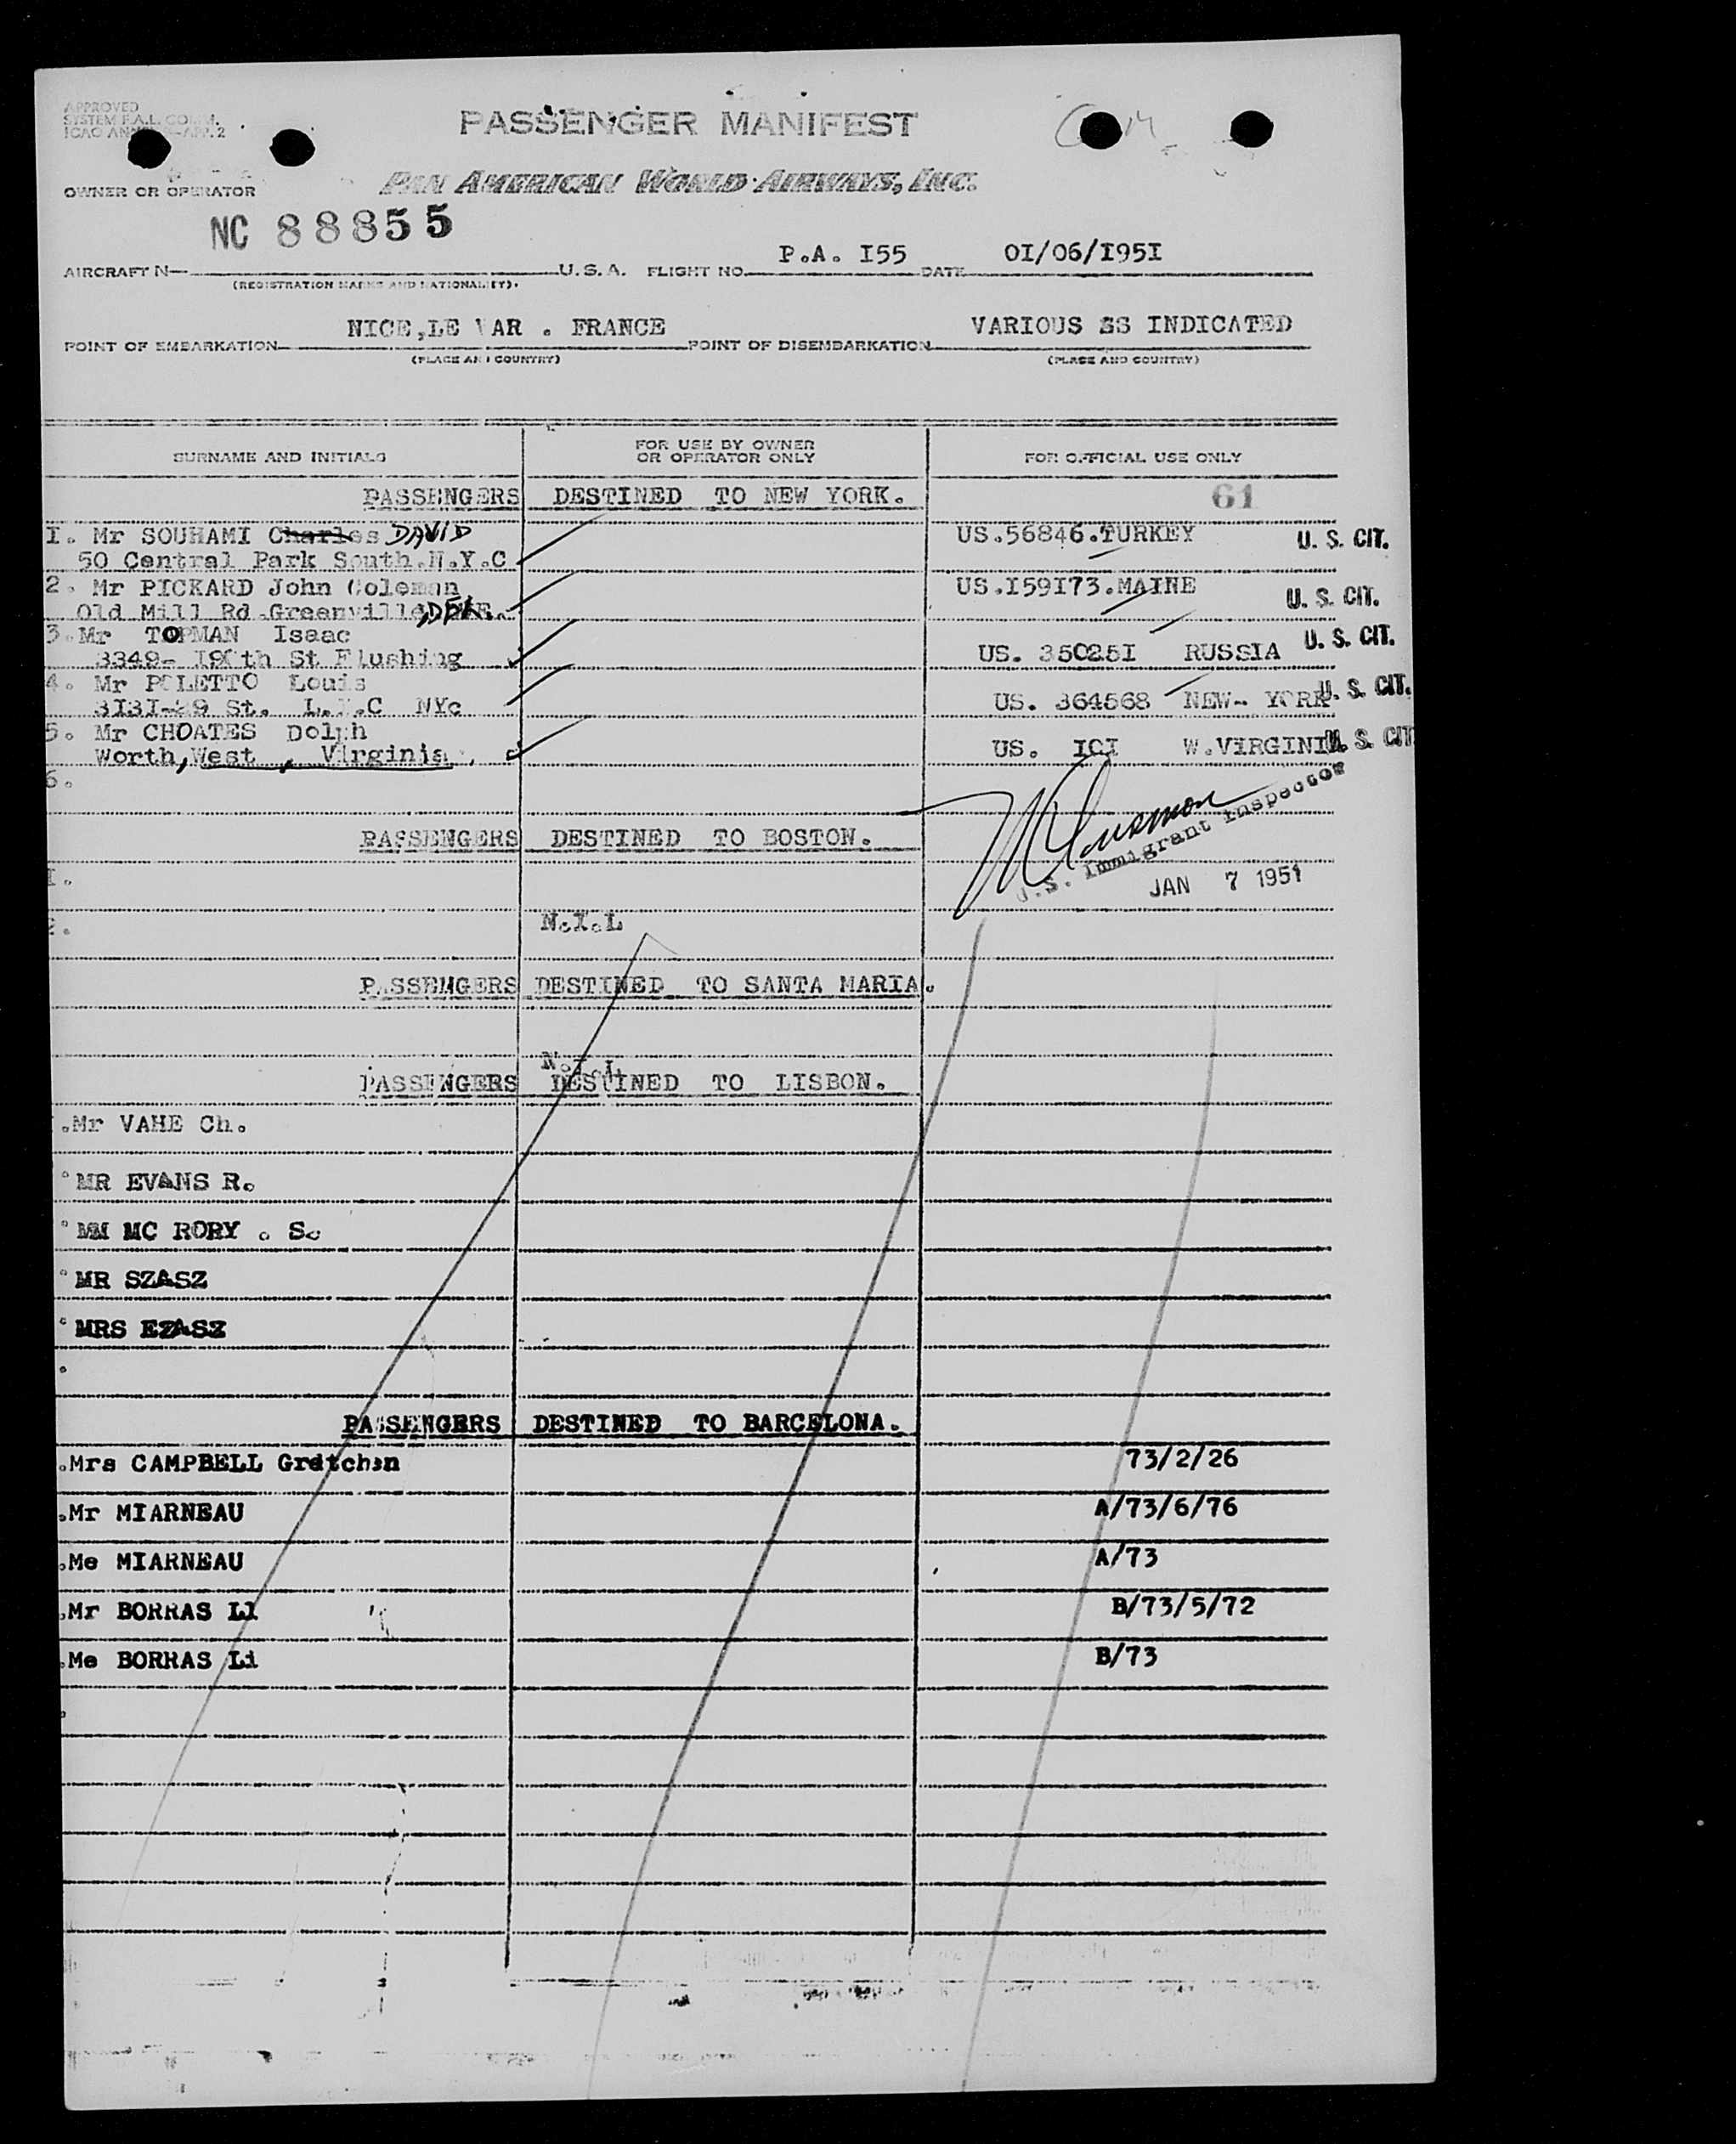 APPROVED
SYSTEM F.A.L. COMM.
ICAO
PASSENGER MANIFEST
OWNER OR OPERATOR
PAN AMERICAN WORLD AIRWAYS, INC.
NC 88855
AIRCRAFT N— U.S.A. FLIGHT NO. P.A. I55 DATE 0I/06/I95I
(REGISTRATION MARKS AND NATIONALITY).
POINT OF EMBARKATION NICE,LE VAR . FRANCE POINT OF DISEMBARKATION VARIOUS SS INDICATED
(PLACE AND COUNTRY) (PLACE AND COUNTRY)
SURNAME AND INITIALS FOR USE BY OWNER OR OPERATOR ONLY FOR OFFICIAL USE ONLY
PASSENGERS DESTINED TO NEW YORK. 61
I. Mr SOUHAMI Charles DAVID US.56846.TURKEY U. S. CIT.
50 Central Park South.N.Y.C
2. Mr PICKARD John Coleman US.I59I73.MAINE U. S. CIT.
Old Mill Rd.Greenville,DEL.
3.Mr TOPMAN Isaac
3349- th St Flushing US. 35025I RUSSIA U. S. CIT.
4. Mr POLETTO Louis
3I3I-29 St. L.I.C NYc US. 364568 NEW- YORK U. S. CIT.
5. Mr CHOATES Dolph
Worth,West , Virginia, US. ICI W.VIRGINIA U. S. CIT
6.
U.S. Immigrant Inspector
PASSENGERS DESTINED TO BOSTON.
I. JAN 7 1951
2. N.I.L
PASSENGERS DESTINED TO SANTA MARIA.
N.I.L
PASSENGERS DESTINED TO LISBON.
.Mr VAHE Ch.
MR EVANS R.
MM MC RORY . S.
MR SZASZ
MRS EZASZ
PASSENGERS DESTINED TO BARCELONA.
.Mrs CAMPBELL Gretchen 73/2/26
.Mr MIARNEAU A/73/6/76
.Me MIARNEAU A/73
.Mr BORRAS LI B/73/5/72
.Me BORRAS Li B/73